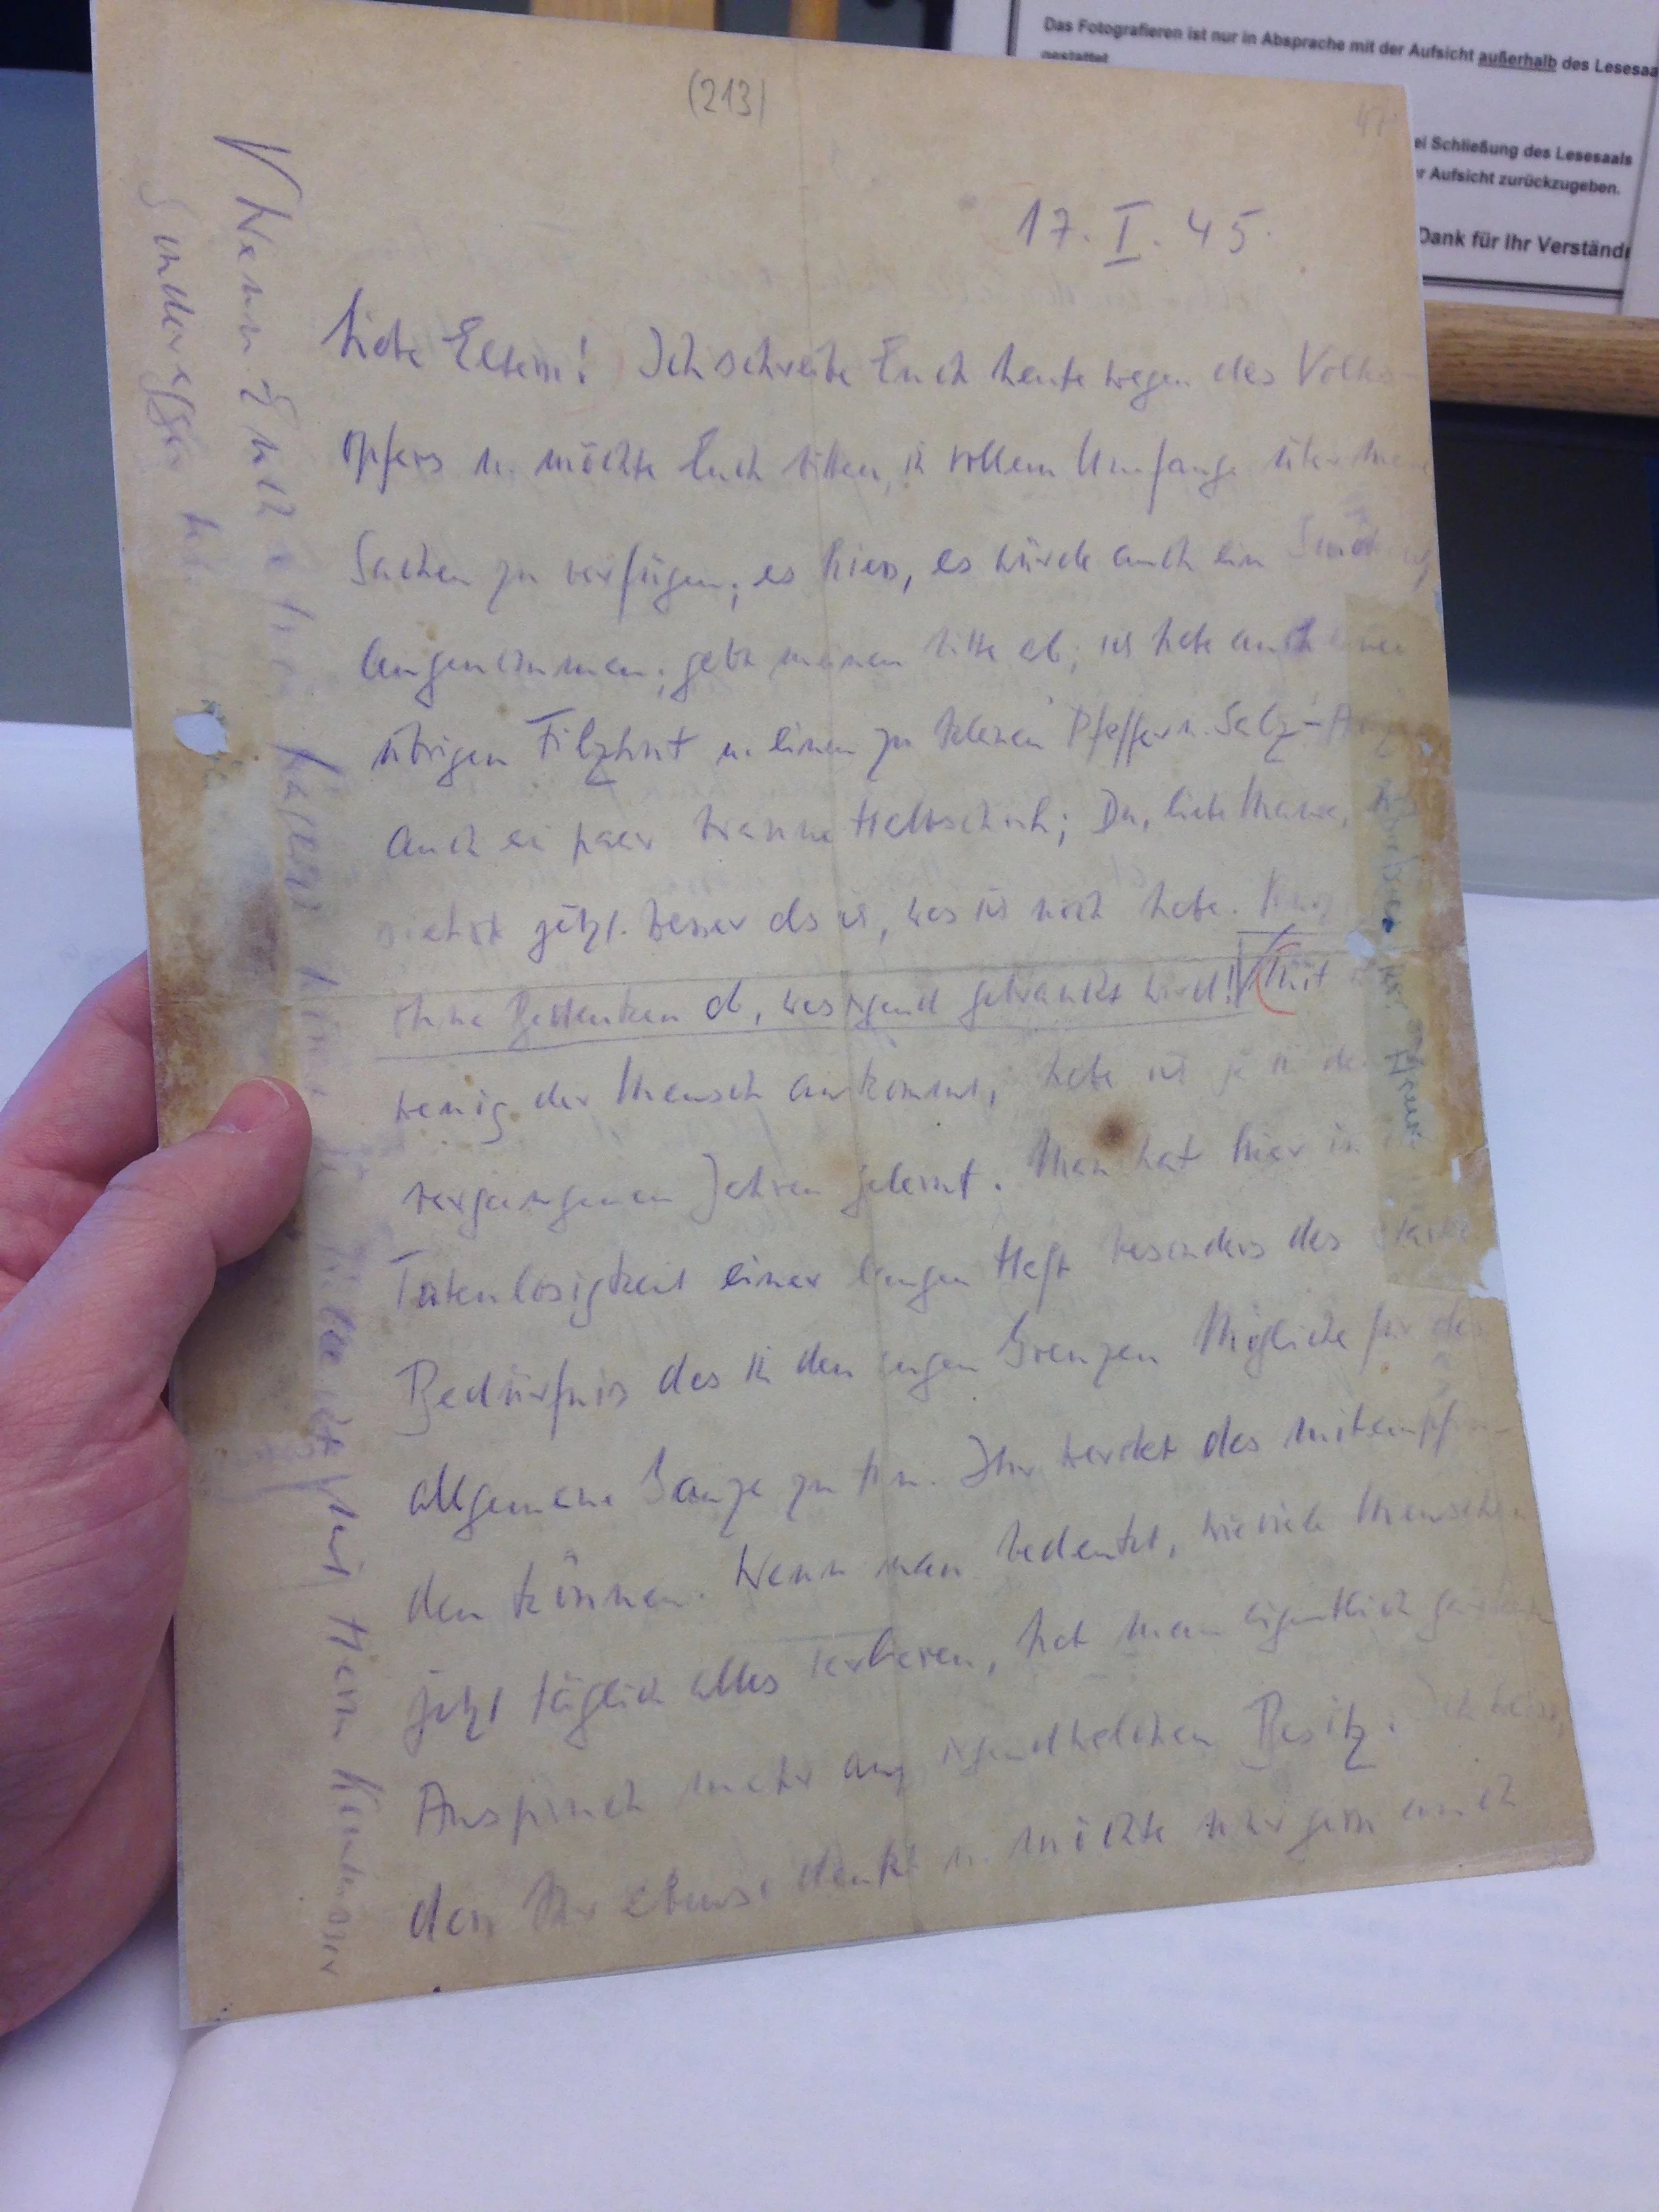 Das Fotografieren ist nur in Absprache mit der Aufsicht außerhalb des Lesesaa
gestattet
ei Schließung des Lesesaals
r Aufsicht zurückzugeben.
Dank für Ihr Verständ
(213)
17. I. 45.
Liebe Eltern! Ich schreibe Euch heute wegen des Volks-
opfers u. möchte Euch bitten, in vollem Umfange über meine
Sachen zu verfügen; es hiess, es würde auch ein
angenommen; gebt meinen bitte ab; ich habe auch einen
übrigen Filzhut u. einen zu kleinen Pfeffer u. Salz-
auch ein paar Halbschuh; Du, liebe Mama,
jetzt besser als ich, was ich noch habe. Kurz
ohne Bedenken ab, was irgend gebraucht wird! Mit
wenig der Mensch auskommt, habe ich ja in den
vergangenen Jahren gelernt. Man hat hier in
Tatenlosigkeit einer langen Haft besonders das starke
Bedürfnis das in den engen Grenzen Mögliche für das
allgemeine Ganze zu tun. Ihr werdet das mitempfin-
den können. Wenn man bedenkt, wieviele Menschen
jetzt täglich alles verlieren, hat man eigentlich gar keinen
Anspruch mehr auf irgendwelchen Besitz. Ich weiss,
dass Ihr ebenso denkt u. möchte nur gern auch
Wenn Euch
Sonderegger
Herrn